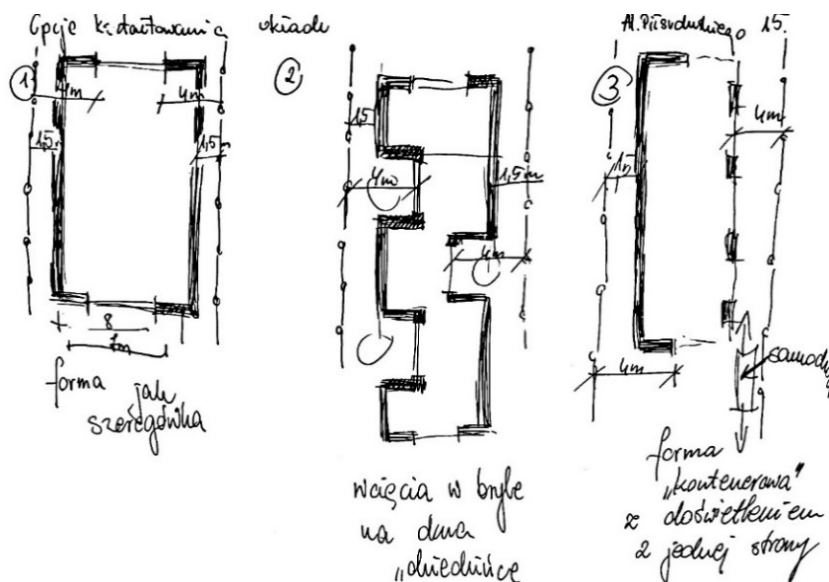 Opcje kształtowania układu
Al. Piłsudskiego 15.
1
4m
4m
1,5
1,5
8
7m
forma jak
szeregówka
2
1,5
4m
1,5m
4m
wcięcia w bryłę
na dwa
"dziedzińce
3
4m
4m
samochody
forma
"kontenerowa"
z doświetleniem
z jednej strony